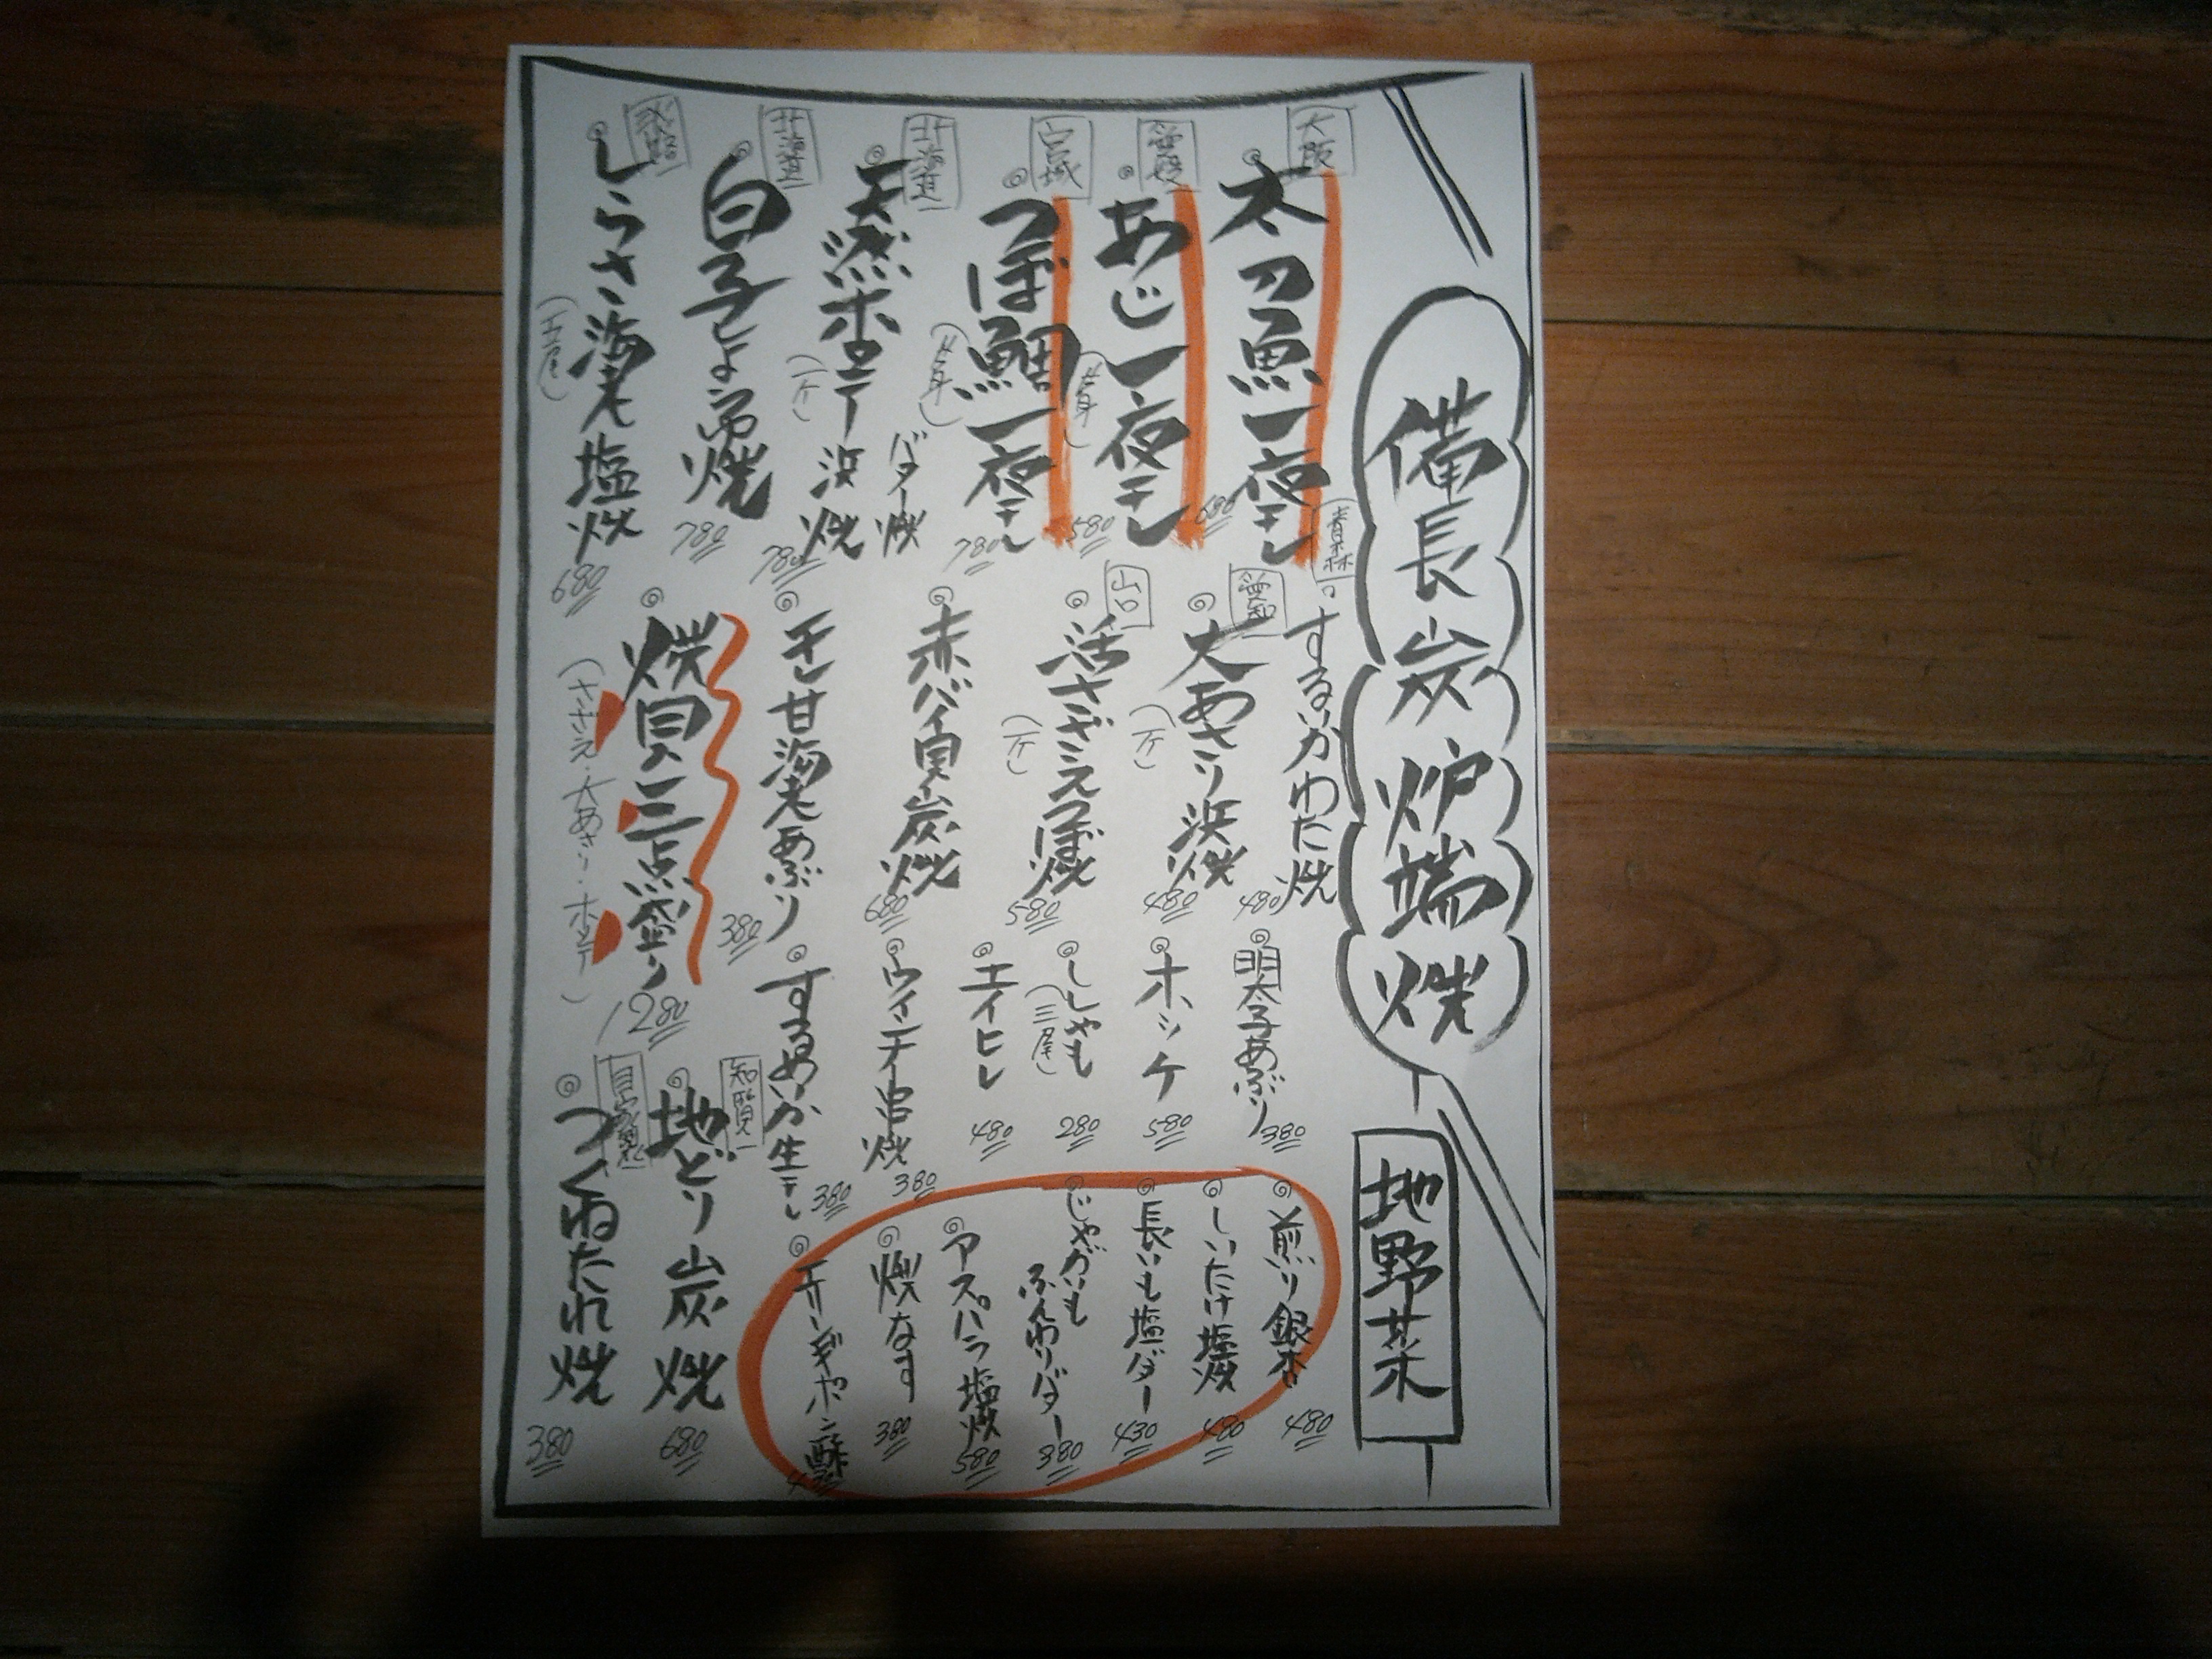 備長炭炉端焼
大阪
太刀魚一夜干し
680
愛媛
あじ一夜干し
580
宮城
つぼ鯛一夜干し
(半身)
780
北海道
天然ホタテ
(一ケ)
バター焼
浜焼
780
北海道
白子しょう油焼
780
しらさ海老塩焼
(五尾)
680
青森
するいかわた焼
480
愛知
大あさり浜焼
(一ケ)
480
山口
活さざえつぼ焼
(一ケ)
580
赤バイ貝炭焼
680
干し甘海老あぶり
380
焼貝三点盛り
(さざえ・大あさり・ホタテ)
1280
明太子あぶり
380
ホッケ
580
ししゃも
(三尾)
280
エイヒレ
480
ウインナー串焼
380
するめいか生干し
380
知覧
地どり炭焼
680
自家製
つくねたれ焼
380
地野菜
煎り銀杏
480
しいたけ塩焼
480
長いも塩バター
430
じゃがいも
ふんわりバター
380
アスパラ塩焼
580
焼なす
380
エリンギポン酢